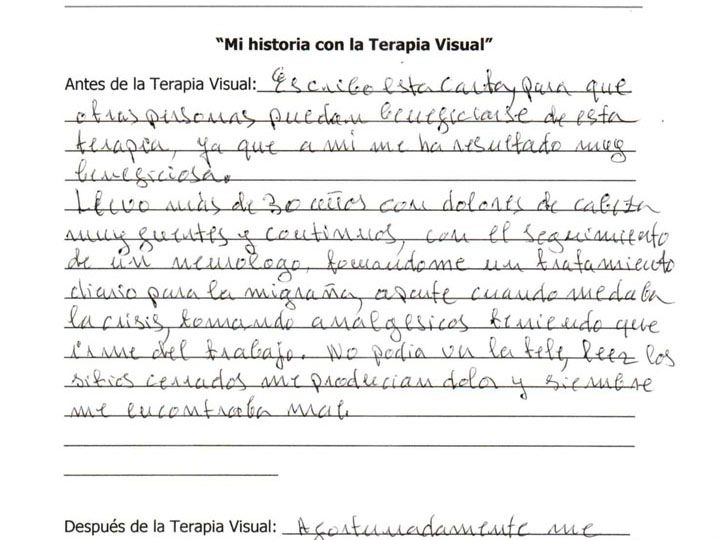 “Mi historia con la Terapia Visual”
Antes de la Terapia Visual: Escribo esta carta, para que
otras personas puedan beneficiarse de esta
terapia, ya que a mi me ha resultado muy
beneficiosa.
Llevo más de 30 años con dolores de cabeza
muy fuertes y continuos, con el seguimiento
de un neurologo, tomandome un tratamiento
diario para la migraña, aparte cuando me daba
la crisis, tomando analgesicos teniendo que
irme del trabajo. No podia ver la tele, leer los
sitios cerrados me producian dolor y siempre
me encontraba mal.
Después de la Terapia Visual: Afortunadamente me